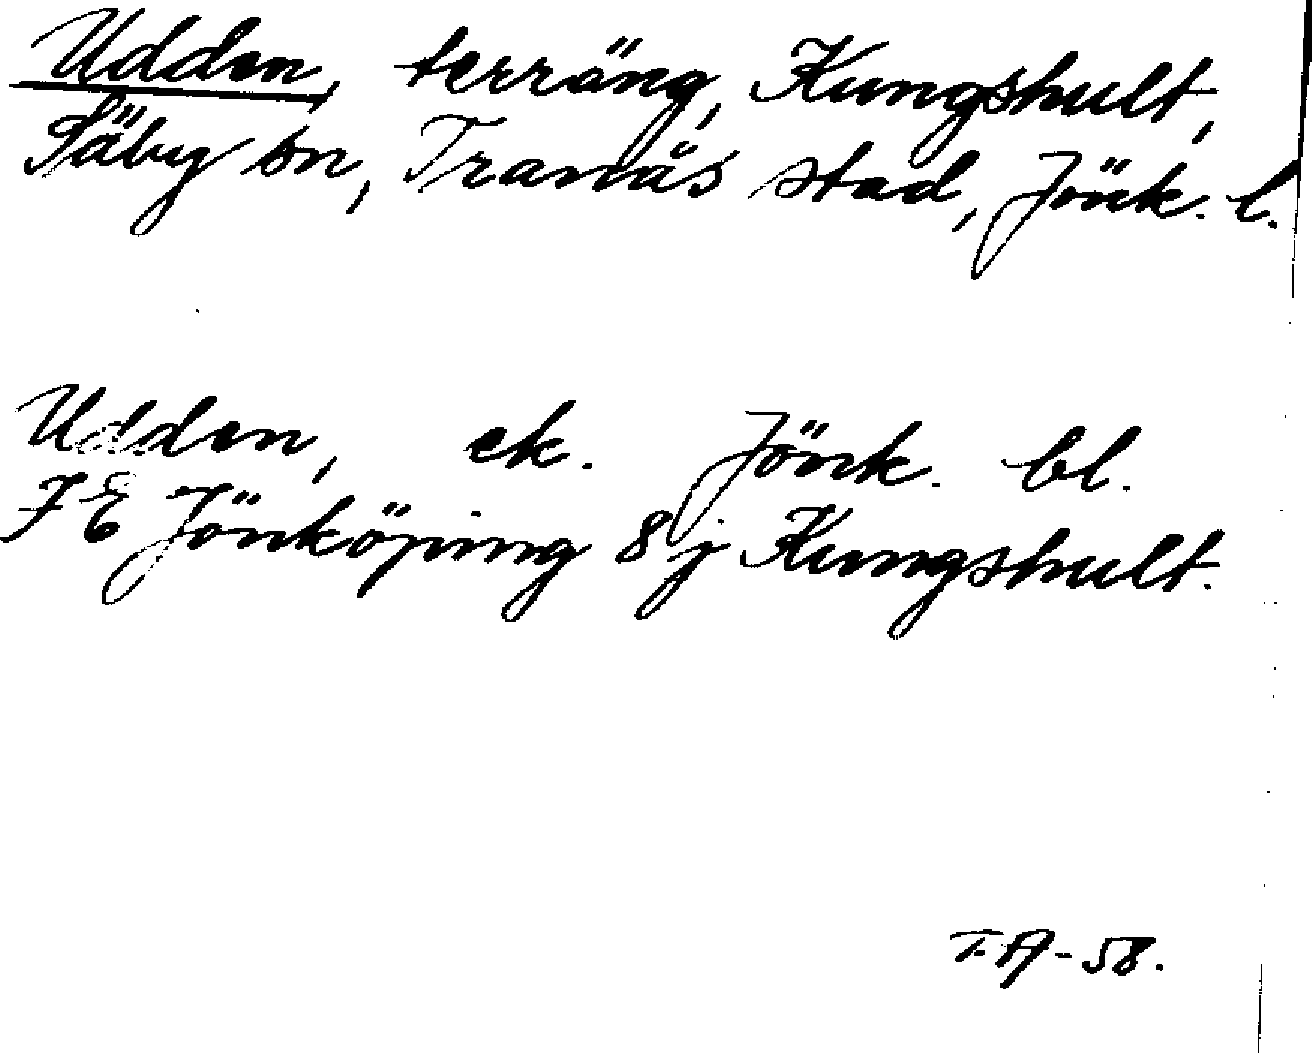 Udden, terräng, Kungshult,
Säby sn, Tranås stad, Jönk. l.
Udden, ek. Jönk. bl.
7 E Jönköping 8 j Kungshult.
T.A-58.